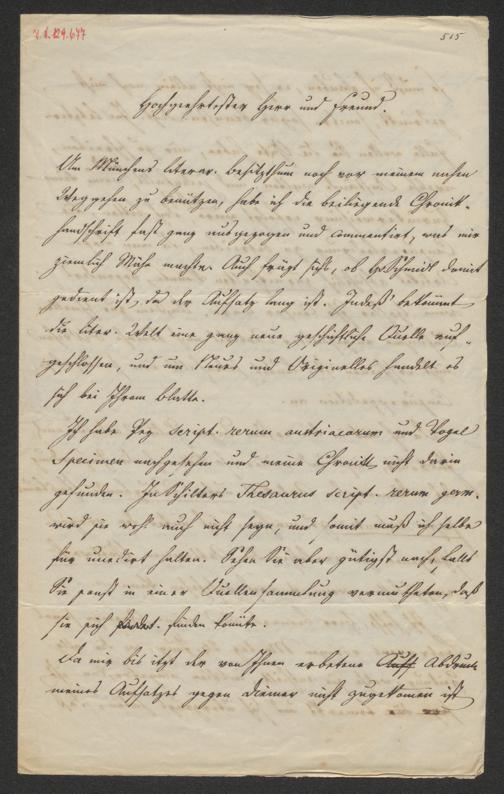 I. N. 129.677
515
Hochgeehrtester Herr und Freund.
Um Münchens literar. Besitzthum noch vor meinem nahen
Weggehen zu benützen, habe ich die beiliegende Chronik-
handschrift fast ganz ausgezogen und commentirt, was mir
ziemlich Mühe machte. Auch frägt sichs, ob H. Schmidl damit
gedient ist, da der Aufsatz lang ist. Indeß bekommt
die liter. Welt eine ganz neue geschichtliche Quelle auf-
geschlossen, und um Neues und Originelles handelt es
sich bei Ihrem Blatte.
Ich habe Pez script. rerum austriacarum und Vogel
Specimen nachgesehen und meine Chronik nicht darin
gefunden. In Schilters Thesaurus script. rerum germ.
wird sie wohl auch nicht seyn, und somit muß ich selbe
für unedirt halten. Sehen Sie aber gütigst nach, falls
Sie sonst in einer Quellensammlung vermutheten, daß
sie sich finden könnte.
Da mir bis itzt der von Ihnen erbetene Abdruck
meines Aufsatzes gegen nicht zugekommen ist